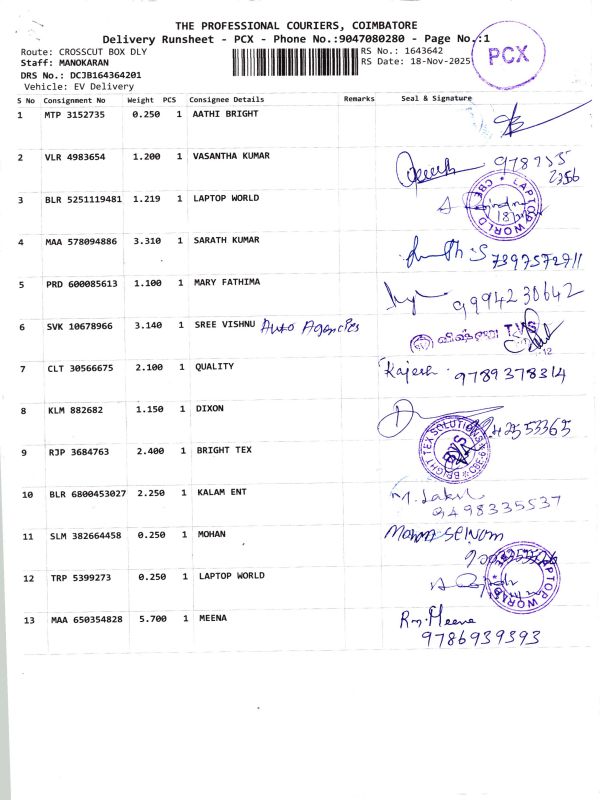 THE PROFESSIONAL COURIERS, COIMBATORE
Delivery Runsheet - PCX - Phone No.:9047080280 - Page No.:1
PCX
Route: CROSSCUT BOX DLY RS No.: 1643642
Staff: MANOKARAN RS Date: 18-Nov-2025
DRS No.: DCJB164364201
Vehicle: EV Delivery
S No Consignment No Weight PCS Consignee Details Remarks Seal & Signature
1 MTP 3152735 0.250 1 AATHI BRIGHT
2 VLR 4983654 1.200 1 VASANTHA KUMAR
2356
3 BLR 5251119481 1.219 1 LAPTOP WORLD
LAPTOP WORLD CBE
4 MAA 578094886 3.310 1 SARATH KUMAR
7397572711
5 PRD 600085613 1.100 1 MARY FATHIMA
9994230642
6 SVK 10678966 3.140 1 SREE VISHNU Auto Agencies
விஷ்ணு TVS
7 CLT 30566675 2.100 1 QUALITY
Rajesh 9789378314
8 KLM 882682 1.150 1 DIXON
9 RJP 3684763 2.400 1 BRIGHT TEX
BRIGHT TEX SOLUTIONS
10 BLR 6800453027 2.250 1 KALAM ENT
9498335537
11 SLM 382664458 0.250 1 MOHAN
12 TRP 5399273 0.250 1 LAPTOP WORLD
LAPTOP WORLD
13 MAA 650354828 5.700 1 MEENA
R.M.Meena
9786939393